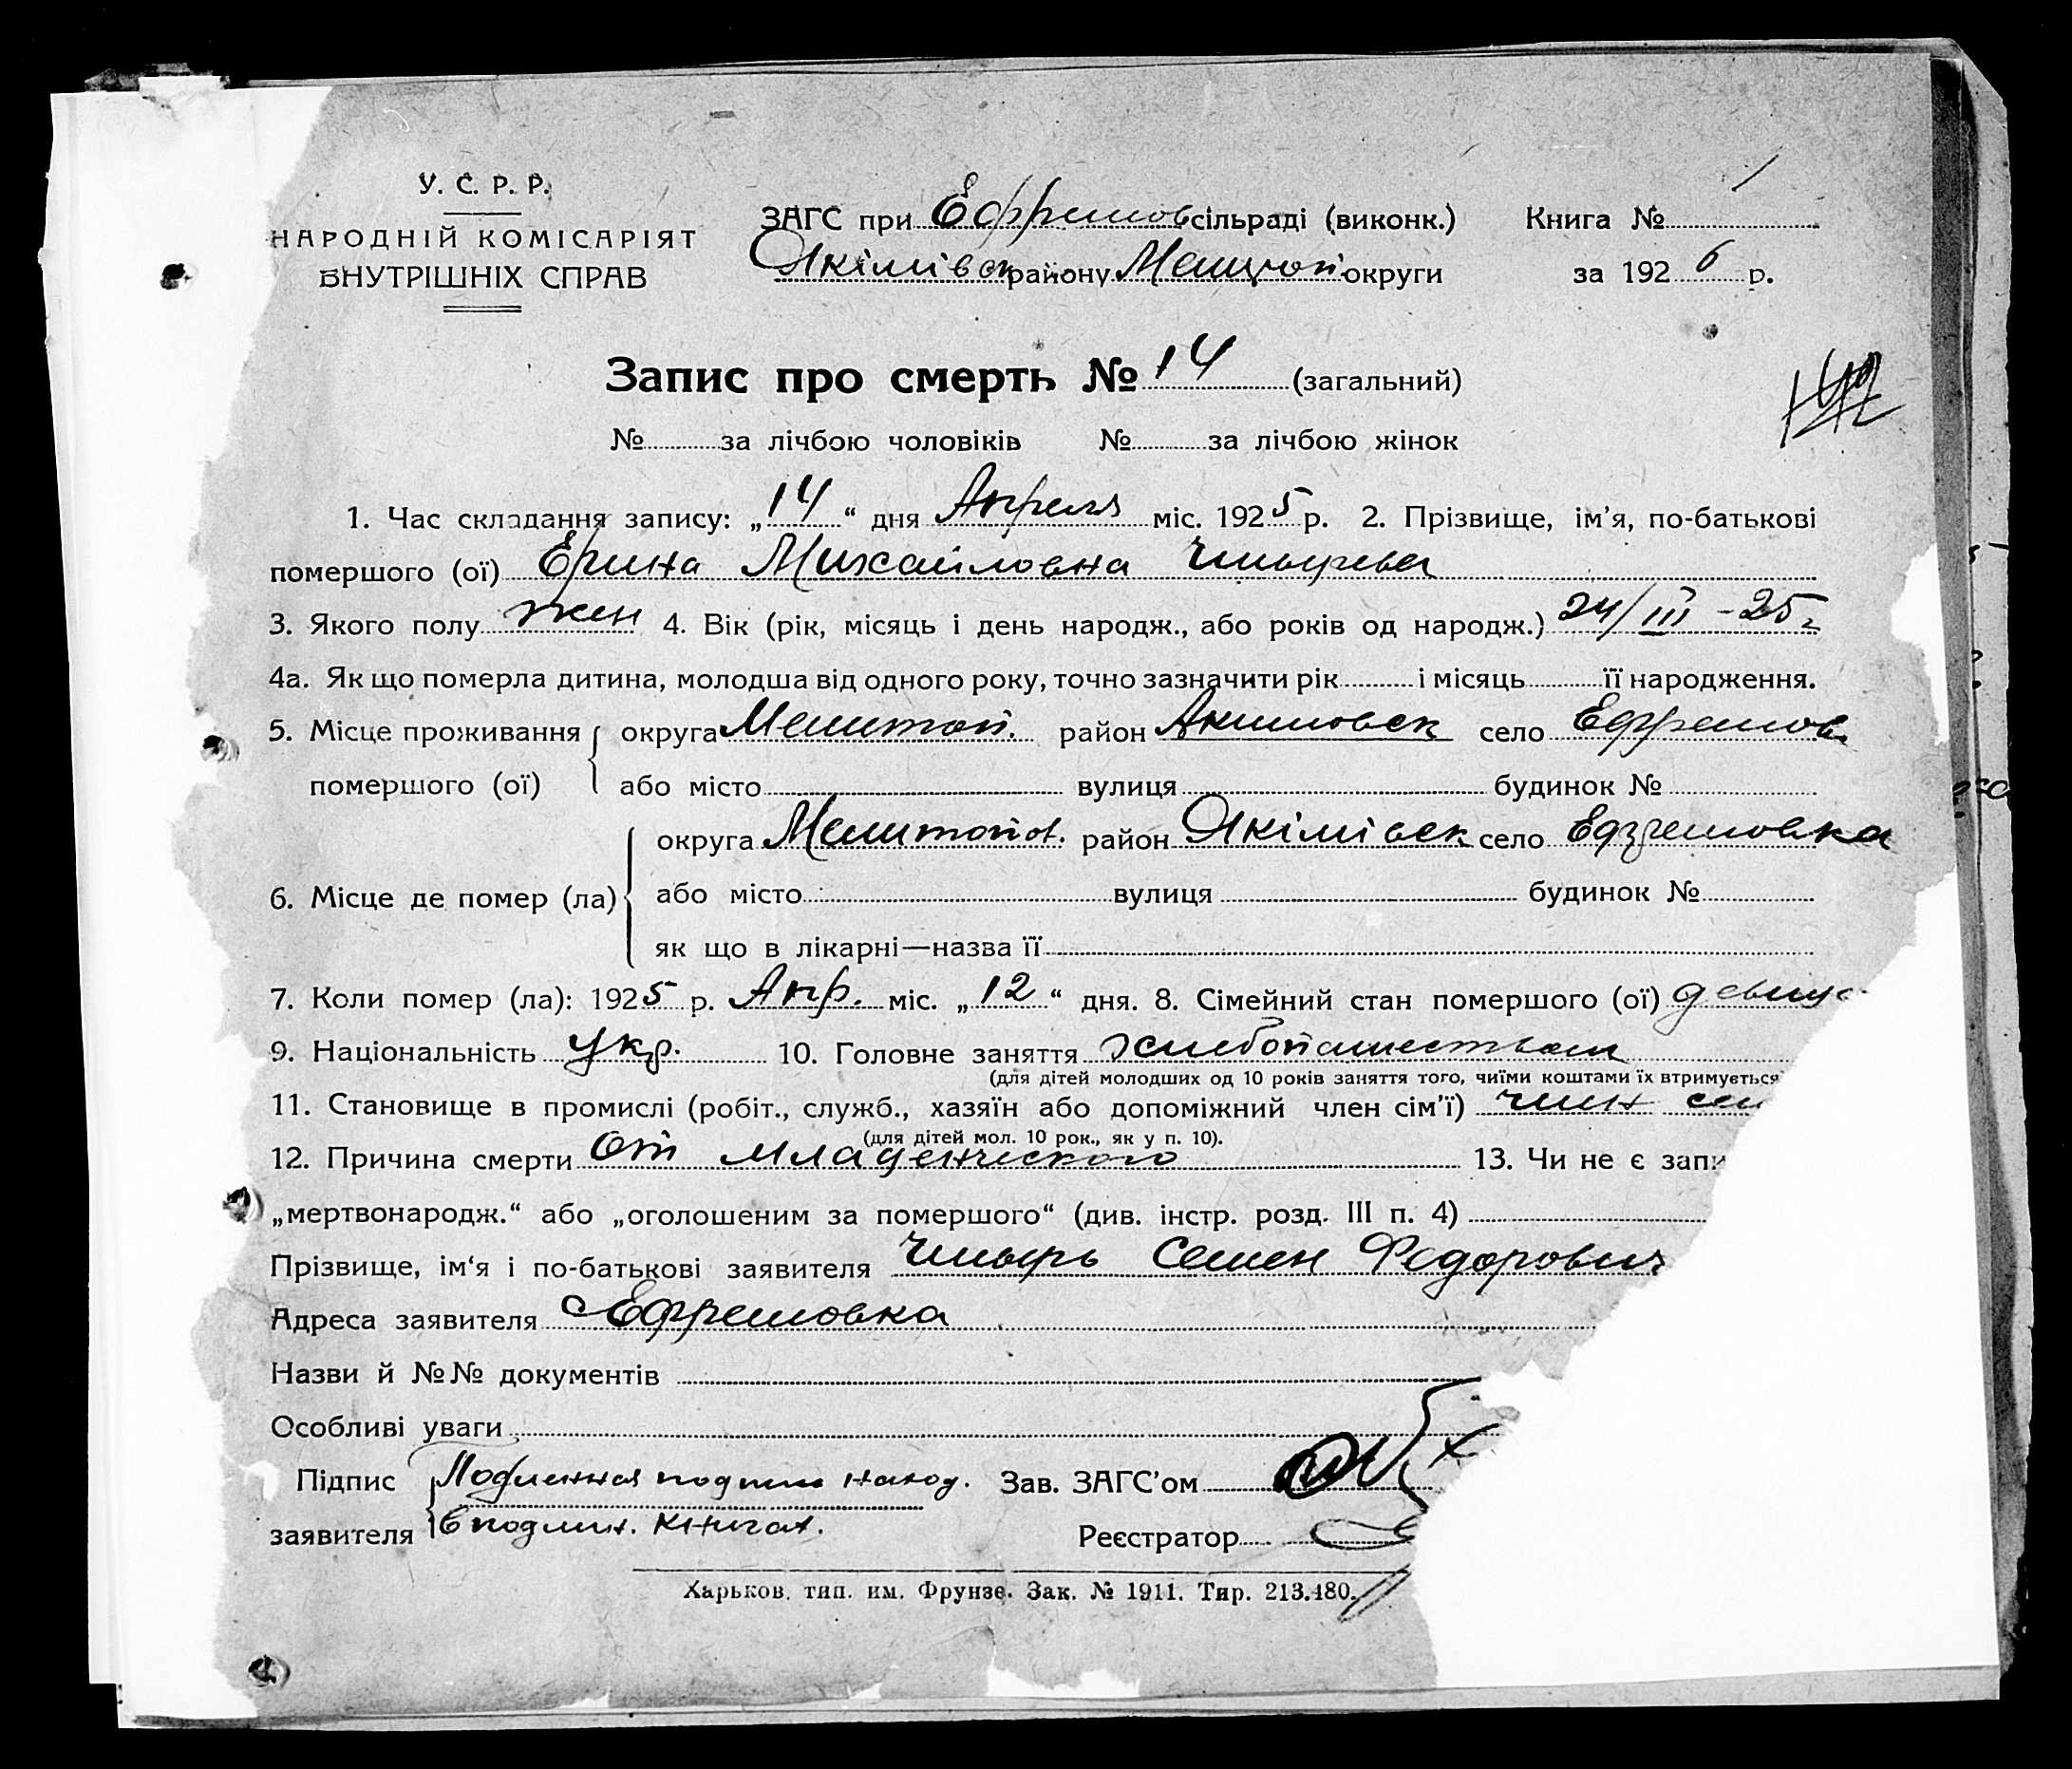 У. С. Р. Р.
НАРОДНІЙ КОМІСАРІЯТ
ВНУТРІШНІХ СПРАВ
ЗАГС при Ефремов сільраді (виконк.) Книга № 1
Якімівск району Мелітоп округи за 1926 р.
Запис про смерть № 14 (загальний)
№ за лічбою чоловіків № за лічбою жінок
1. Час складання запису: „14“ дня Апреля міс. 1925 р. 2. Прізвище, ім’я, по-батькові
помершого (ої) Ерина Михайловна
3. Якого полу жен 4. Вік (рік, місяць і день народж., або років од народж.) 24/III - 25 г
4а. Як що померла дитина, молодша від одного року, точно зазначити рік і місяць її народження.
5. Місце проживання округа Мелитоп. район Акимовск село Ефремов.
помершого (ої) або місто вулиця будинок №
округа Мелитопол. район Якімівск село Ефремовка
6. Місце де помер (ла) або місто вулиця будинок №
як що в лікарні—назва її
7. Коли помер (ла): 1925 р. Апр. міс. „12“ дня. 8. Сімейний стан помершого (ої)
9. Національність Укр. 10. Головне заняття хлебопашеством
(для дітей молодших од 10 років заняття того, чиїми коштами їх втримується
11. Становище в промислі (робіт., служб., хазяїн або допоміжний член сім’ї) член сем
(для дітей мол. 10 рок., як у п. 10).
12. Причина смерти От младенческого 13. Чи не є запи
„мертвонародж.“ або „оголошеним за помершого“ (див. інстр. розд. III п. 4)
Прізвище, ім‘я і по-батькові заявителя Семен Федорович
Адреса заявителя с Ефремовка
Назви й №№ документів
Особливі уваги
Підпис Подлинная подпись наход. Зав. ЗАГС’ом
заявителя в подлин. книгах. Реєстратор
Харьков, тип. им. Фрунзе. Зак. № 1911. Тир. 213.480.